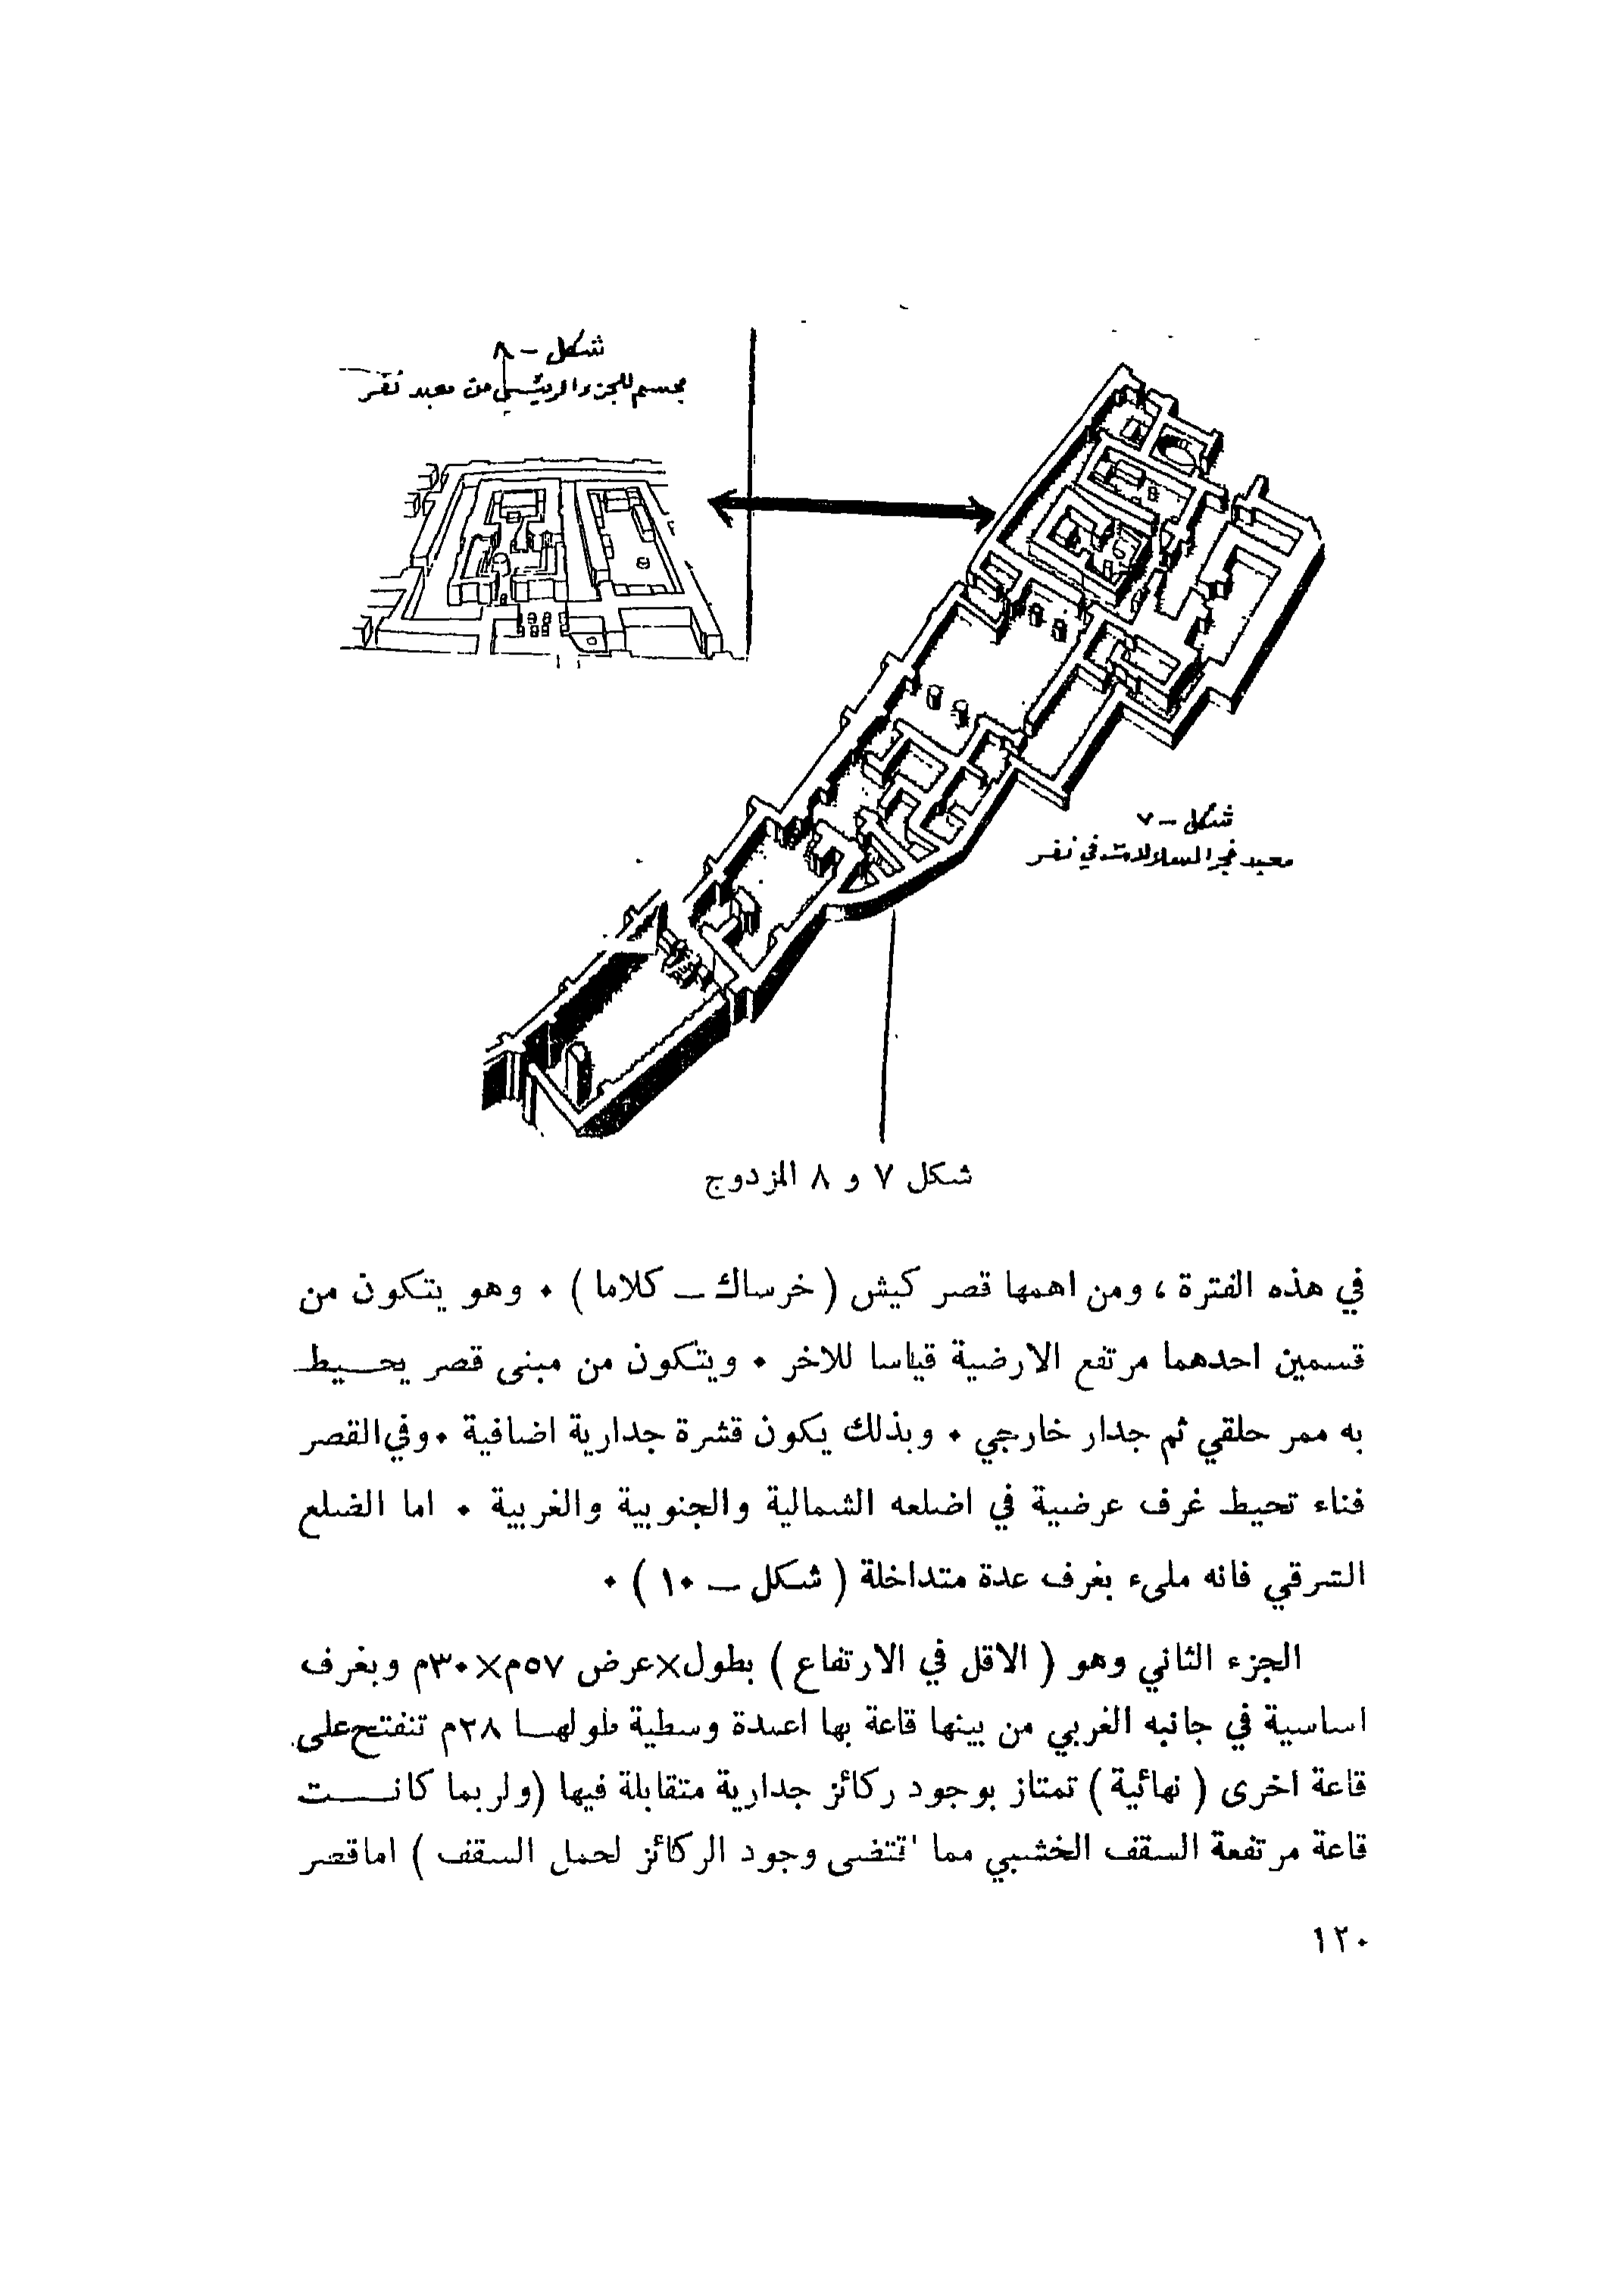 شكل - ٨
مجسم للجزء الرئيسي من معبد نفر
شكل - ٧
معبد فجر السلالات في نفر
شكل ٧ و ٨ المزدوج
في هذه الفترة ، ومن اهمها قصر كيش ( خرساك – كلاما ) ٠ وهو يتكون من
قسمين احدهما مرتفع الارضية قياسا للاخر ٠ ويتكون من مبنى قصر يحيط
به ممر حلقي ثم جدار خارجي ٠ وبذلك يكون قشرة جدارية اضافية ٠ وفي القصر
فناء تحيط غرف عرضية في اضلعه الشمالية والجنوبية والغربية ٠ اما الضلع
الشرقي فانه مليء بغرف عدة متداخلة ( شكل – ١٠ ) ٠
الجزء الثاني وهو ( الاقل في الارتفاع ) بطول×عرض ٥٧م×٣٠م وبغرف
اساسية في جانبه الغربي من بينها قاعة بها اعمدة وسطية طولها ٢٨م تنفتح على
قاعة اخرى ( نهائية ) تمتاز بوجود ركائز جدارية متقابلة فيها (ولربما كانت
قاعة مرتفعة السقف الخشبي مما اقتضى وجود الركائز لحمل السقف ) اما قصر
١٢٠